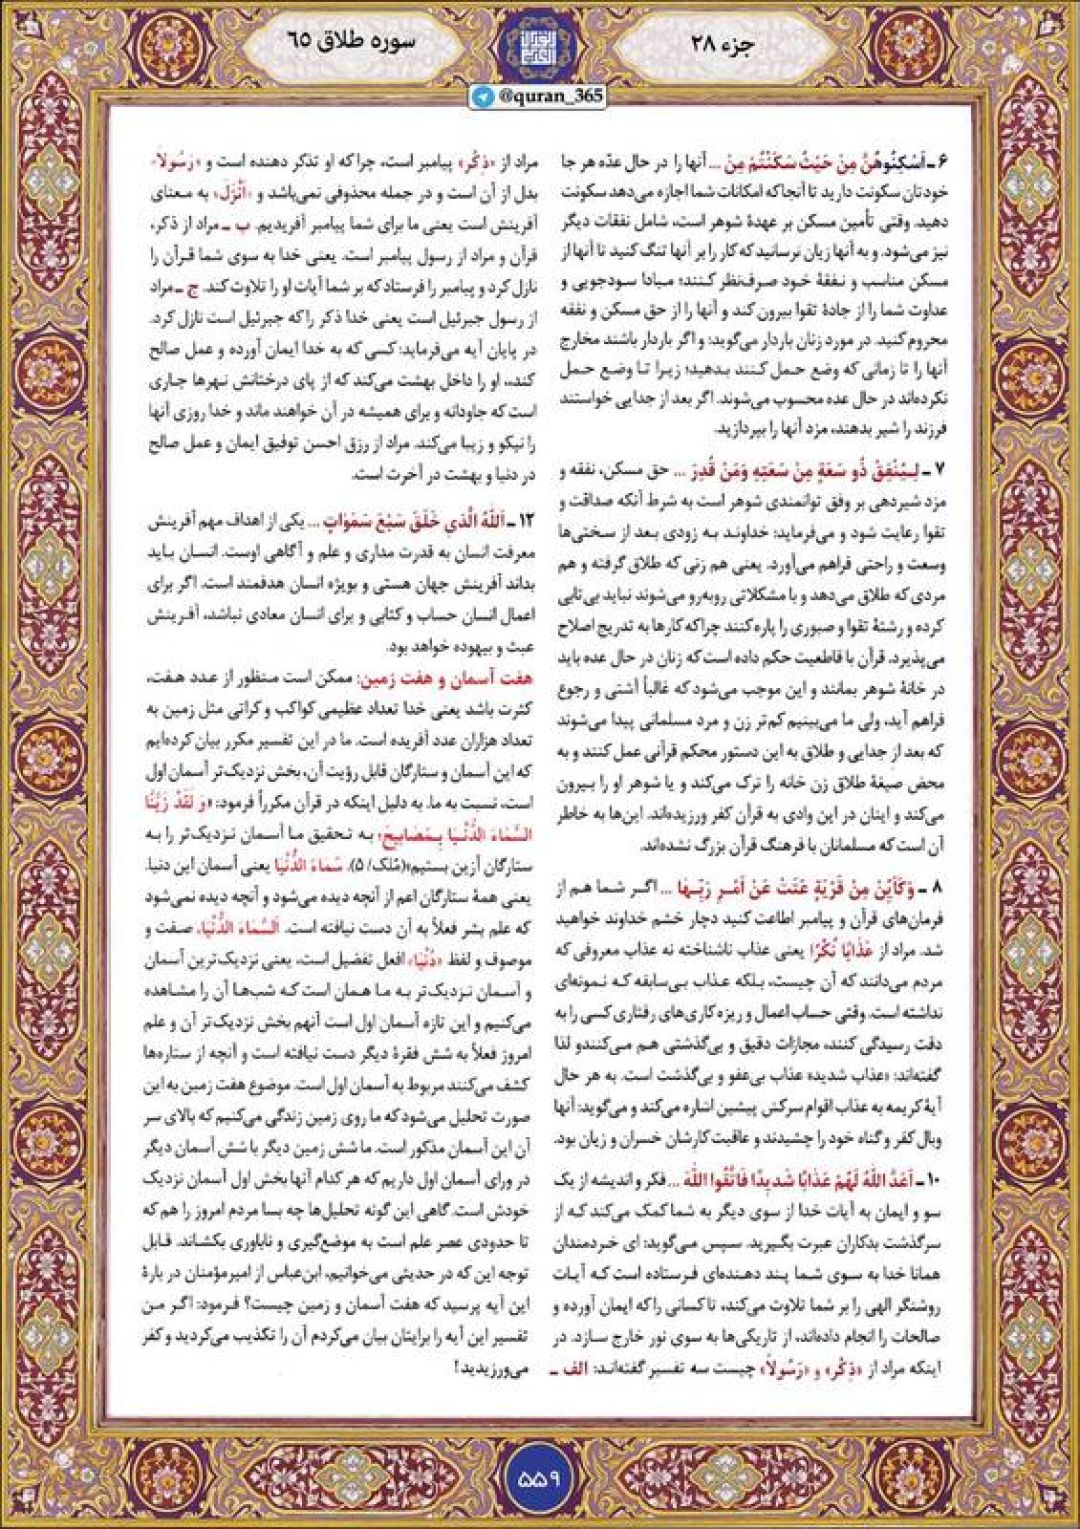 جزء ۲۸
سوره طلاق ۶۵
@quran_365
۶ ـ أَسْكِنُوهُنَّ مِنْ حَيْثُ سَكَنْتُمْ مِنْ ... آنها را در حال عدّه هر جا
خودتان سکونت دارید تا آنجا که امکانات شما اجازه می‌دهد سکونت
دهید. وقتی تأمین مسکن بر عهدهٔ شوهر است، شامل نفقات دیگر
نیز می‌شود. و به آنها زیان نرسانید که کار را بر آنها تنگ کنید تا آنها از
مسکن مناسب و نفقهٔ خود صرف‌نظر کنند؛ مبادا سودجویی و
عداوت شما را از جادهٔ تقوا بیرون کند و آنها را از حق مسکن و نفقه
محروم کنید. در مورد زنان باردار می‌گوید: و اگر باردار باشند مخارج
آنها را تا زمانی که وضع حمل کنند بدهید؛ زیرا تا وضع حمل
نکرده‌اند در حال عده محسوب می‌شوند. اگر بعد از جدایی خواستند
فرزند را شیر بدهند، مزد آنها را بپردازید.
۷ ـ لِيُنْفِقْ ذُو سَعَةٍ مِنْ سَعَتِهِ وَمَنْ قُدِرَ ... حق مسکن، نفقه و
مزد شیردهی بر وفق توانمندی شوهر است به شرط آنکه صداقت و
تقوا رعایت شود و می‌فرماید: خداوند به زودی بعد از سختی‌ها
وسعت و راحتی فراهم می‌آورد. یعنی هم زنی که طلاق گرفته و هم
مردی که طلاق می‌دهد و با مشکلاتی روبه‌رو می‌شوند نباید بی‌تابی
کرده و رشتهٔ تقوا و صبوری را پاره کنند چراکه کارها به تدریج اصلاح
می‌پذیرد. قرآن با قاطعیت حکم داده است که زنان در حال عده باید
در خانهٔ شوهر بمانند و این موجب می‌شود که غالباً آشتی و رجوع
فراهم آید، ولی ما می‌بینیم کم‌تر زن و مرد مسلمانی پیدا می‌شوند
که بعد از جدایی و طلاق به این دستور محکم قرآنی عمل کنند و به
محض صیغهٔ طلاق زن خانه را ترک می‌کند و یا شوهر او را بیرون
می‌کند و اینان در این وادی به قرآن کفر ورزیده‌اند. این‌ها به خاطر
آن است که مسلمانان با فرهنگ قرآن بزرگ نشده‌اند.
۸ ـ وَكَأَيِّنْ مِنْ قَرْيَةٍ عَتَتْ عَنْ أَمْرِ رَبِّهَا ... اگر شما هم از
فرمان‌های قرآن و پیامبر اطاعت کنید دچار خشم خداوند خواهید
شد. مراد از عَذَابًا نُكْرًا یعنی عذاب ناشناخته نه عذاب معروفی که
مردم می‌دانند که آن چیست، بلکه عذاب بی‌سابقه که نمونه‌ای
نداشته است. وقتی حساب اعمال و ریزه کاری‌های رفتاری کسی را به
دقت رسیدگی کنند، مجازات دقیق و بی‌گذشتی هم می‌کنندو لذا
گفته‌اند: «عذاب شدید» عذاب بی‌عفو و بی‌گذشت است. به هر حال
آیهٔ کریمه به عذاب اقوام سرکش پیشین اشاره می‌کند و می‌گوید: آنها
وبال کفر و گناه خود را چشیدند و عاقبت کارشان خسران و زیان بود.
۱۰ ـ أَعَدَّ اللهُ لَهُمْ عَذَابًا شَدِيدًا فَاتَّقُوا اللهَ ... فکر و اندیشه از یک
سو و ایمان به آیات خدا از سوی دیگر به شما کمک می‌کند که از
سرگذشت بدکاران عبرت بگیرید. سپس می‌گوید: ای خردمندان
همانا خدا به سوی شما پند دهنده‌ای فرستاده است که آیات
روشنگر الهی را بر شما تلاوت می‌کند، تا کسانی را که ایمان آورده و
صالحات را انجام داده‌اند، از تاریکی‌ها به سوی نور خارج سازد. در
اینکه مراد از «ذِکْر» و «رَسُولاً» چیست سه تفسیر گفته‌اند: الف ـ
مراد از «ذِکْر» پیامبر است، چرا که او تذکر دهنده است و «رَسُولاً»
بدل از آن است و در جمله محذوفی نمی‌باشد و «أَنْزَلَ» به معنای
آفرینش است یعنی ما برای شما پیامبر آفریدیم. ب ـ مراد از ذکر،
قرآن و مراد از رسول پیامبر است. یعنی خدا به سوی شما قرآن را
نازل کرد و پیامبر را فرستاد که بر شما آیات او را تلاوت کند. ج ـ مراد
از رسول جبرئیل است یعنی خدا ذکر را که جبرئیل است نازل کرد.
در پایان آیه می‌فرماید: کسی که به خدا ایمان آورده و عمل صالح
کند، او را داخل بهشت می‌کند که از پای درختانش نهرها جاری
است که جاودانه و برای همیشه در آن خواهند ماند و خدا روزی آنها
را نیکو و زیبا می‌کند. مراد از رزق احسن توفیق ایمان و عمل صالح
در دنیا و بهشت در آخرت است.
۱۲ ـ اَللهُ الَّذِي خَلَقَ سَبْعَ سَمَوَاتٍ ... یکی از اهداف مهم آفرینش
معرفت انسان به قدرت مداری و علم و آگاهی اوست. انسان باید
بداند آفرینش جهان هستی و بویژه انسان هدفمند است. اگر برای
اعمال انسان حساب و کتابی و برای انسان معادی نباشد، آفرینش
عبث و بیهوده خواهد بود.
هفت آسمان و هفت زمین: ممکن است منظور از عدد هفت،
کثرت باشد یعنی خدا تعداد عظیمی کواکب و کراتی مثل زمین به
تعداد هزاران عدد آفریده است. ما در این تفسیر مکرر بیان کرده‌ایم
که این آسمان و ستارگان قابل رؤیت آن، بخش نزدیک‌تر آسمان اول
است، نسبت به ما. به دلیل اینکه در قرآن مکرراً فرمود: «وَ لَقَدْ زَيَّنَّا
السَّمَاءَ الدُّنْيَا بِمَصَابِيحَ» به تحقیق ما آسمان نزدیک‌تر را به
ستارگان آزین بستیم»(مُلک/ ۵). سَمَاءَ الدُّنْيَا یعنی آسمان این دنیا.
یعنی همهٔ ستارگان اعم از آنچه دیده می‌شود و آنچه دیده نمی‌شود
که علم بشر فعلاً به آن دست نیافته است. اَلسَّمَاءَ الدُّنْيَا، صفت و
موصوف و لفظ «دُنْيَا» افعل تفضیل است، یعنی نزدیک‌ترین آسمان
و آسمان نزدیک‌تر به ما همان است که شب‌ها آن را مشاهده
می‌کنیم و این تازه آسمان اول است آنهم بخش نزدیک‌تر آن و علم
امروز فعلاً به شش فقرهٔ دیگر دست نیافته است و آنچه از ستاره‌ها
کشف می‌کنند مربوط به آسمان اول است. موضوع هفت زمین به این
صورت تحلیل می‌شود که ما روی زمین زندگی می‌کنیم که بالای سر
آن این آسمان مذکور است. ما شش زمین دیگر با شش آسمان دیگر
در ورای آسمان اول داریم که هر کدام آنها بخش اول آسمان نزدیک
خودش است. گاهی این گونه تحلیل‌ها چه بسا مردم امروز را هم که
تا حدودی عصر علم است به موضع‌گیری و ناباوری بکشاند. قابل
توجه این که در حدیثی می‌خوانیم، ابن‌عباس از امیرمؤمنان در بارهٔ
این آیه پرسید که هفت آسمان و زمین چیست؟ فرمود: اگر من
تفسیر این آیه را برایتان بیان می‌کردم آن را تکذیب می‌کردید و کفر
می‌ورزیدید!
۵۵۹